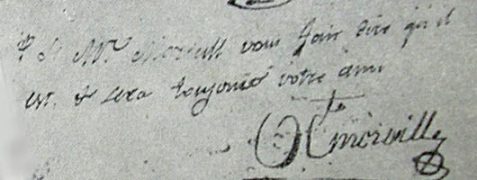 P S Mr Morvill vous fait dire qu'il
est & sera toujours votre ami
morville